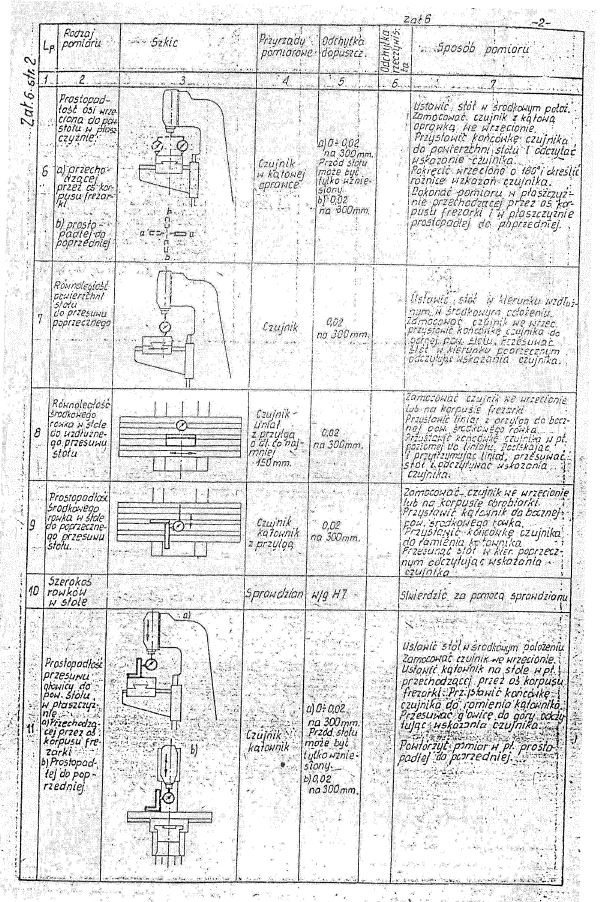 zał 6 -2-
Zał. 6 str. 2
Lp. Rodzaj pomiaru Szkic Przyrządy pomiarowe Odchyłka dopuszcz. Odchyłka rzeczywista Sposób pomiaru
1 2 3 4 5 6 7
6
Prostopad-
łość osi wrze-
ciona do pow.
stołu w płasz-
czyźnie:
a) przecho-
dzącej
przez oś kor-
pusu frezar-
ki
b) prosto-
padłej do
poprzedniej
b
a a
b
Czujnik
w kątowej
oprawce
a) 0÷0,02
na 300mm.
Przód stołu
może być
tylko wznie-
siony.
b) 0,02
na 300mm.
Ustawić stół w środkowym położ.
Zamocować czujnik z kątową
oprawką we wrzecionie.
Przystawić końcówkę czujnika
do powierzchni stołu i odczytać
wskazanie czujnika.
Pokręcić wrzeciono o 180° i określić
różnicę wskazań czujnika.
Dokonać pomiaru w płaszczyź-
nie przechodzącej przez oś kor-
pusu frezarki i w płaszczyźnie
prostopadłej do poprzedniej.
7
Równoległość
powierzchni
stołu
do przesuwu
poprzecznego
Czujnik
0,02
na 300mm.
Ustawić stół w kierunku wzdłuż-
nym w środkowym położeniu.
Zamocować czujnik we wrzec.
przystawić końcówkę czujnika do
pow. stołu. Przesuwać
stół w kierunku poprzecznym
odczytując wskazania czujnika.
8
Równoległość
środkowego
rowka w stole
do wzdłużnego
przesuwu
stołu
Czujnik
Liniał
z przylgą
o dł. co naj-
mniej
150mm.
0,02
na 300mm.
Zamocować czujnik we wrzecionie
lub na korpusie frezarki
Przystawić liniał z przylgą do bocz-
nej pow. środkowego rowka.
Przystawić końcówkę czujnika w pł.
poziomej do liniału. Dociskając
i przytrzymując liniał, przesuwać
stół i odczytywać wskazania
czujnika.
9
Prostopadłość
środkowego
rowka w stole
do poprzeczne-
go przesuwu
stołu.
Czujnik
kątownik
z przylgą
0,02
na 300mm.
Zamocować czujnik we wrzecionie
lub na korpusie obrabiarki.
Przystawić kątownik do bocznej
pow. środkowego rowka.
Przystawić końcówkę czujnika
do ramienia kątownika.
Przesunąć stół w kier. poprzecz-
nym odczytując wskazania
czujnika
10
Szerokość
rowków
w stole
Sprawdzian
w/g H7
Stwierdzić za pomocą sprawdzianu
11
Prostopadłość
przesuwu
głowicy do
pow. stołu,
w płaszczyź-
nie
a) Przechodzą-
cej przez oś
korpusu fre-
zarki
b) Prostopad-
łej do pop-
rzedniej
a)
b)
Czujnik
kątownik
a) 0÷0,02
na 300mm.
Przód stołu
może być
tylko wznie-
siony.
b) 0,02
na 300mm.
Ustawić stół w środkowym położeniu
Zamocować czujnik we wrzecionie.
Ustawić kątownik na stole w pł.
przechodzącej przez oś korpusu
frezarki. Przystawić końcówkę
czujnika do ramienia kątownika.
Przesuwać głowicę do góry odczy-
tując wskazania czujnika.
Powtórzyć pomiar w pł. prosto-
padłej do poprzedniej.